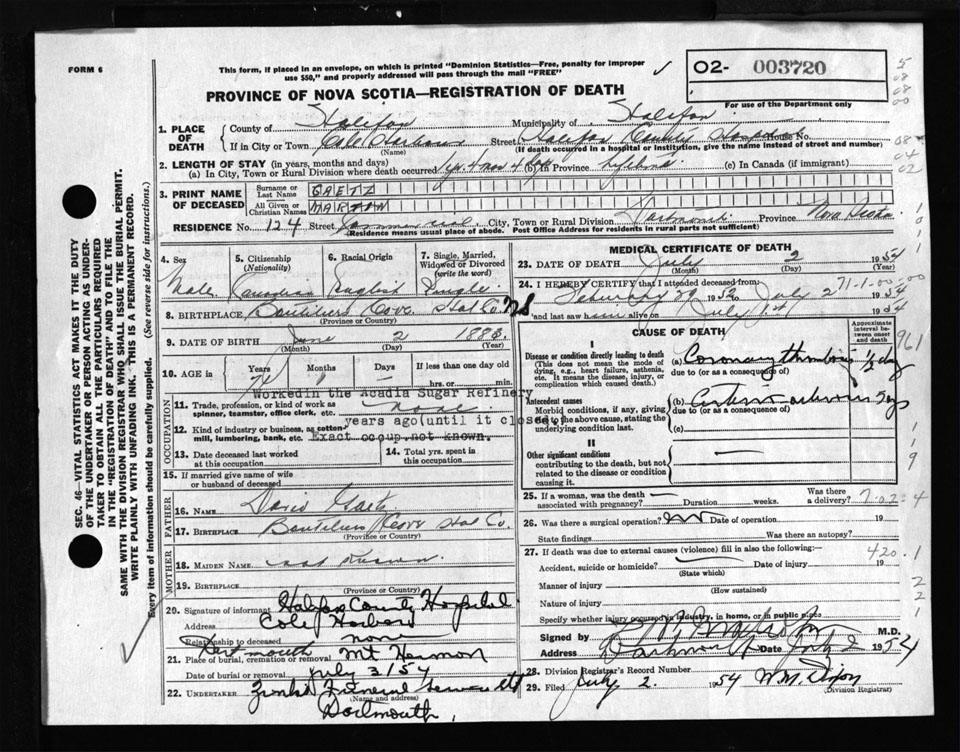 FORM 6
This form, if placed in an envelope, on which is printed "Dominion Statistics—Free, penalty for improper
use $50," and properly addressed will pass through the mail "FREE"
O2- 003720
For use of the Department only
PROVINCE OF NOVA SCOTIA—REGISTRATION OF DEATH
1. PLACE OF DEATH
County of Halifax Municipality of Halifax
If in City or Town Cole Harbour (Name) Street Halifax County Hospital House No.
(If death occurred in a hospital or institution, give the name instead of street and number)
2. LENGTH OF STAY (in years, months and days)
(a) In City, Town or Rural Division where death occurred (b) In Province lifetime (c) In Canada (if immigrant)
3. PRINT NAME OF DECEASED
Surname or Last Name GAETZ
All Given or Christian Names MARTIN
RESIDENCE No. 124 Street Commercial City, Town or Rural Division Dartmouth Province Nova Scotia
(Residence means usual place of abode. Post Office Address for residents in rural parts not sufficient)
4. Sex Male
5. Citizenship (Nationality) Canadian
6. Racial Origin English
7. Single, Married, Widowed or Divorced (write the word) Single
8. BIRTHPLACE Boutiliers Cove Hal Co. NS
(Province or Country)
9. DATE OF BIRTH June 2 1883
(Month) (Day) (Year)
10. AGE in Years 71 Months 1 Days — If less than one day old
hrs. or min.
Worked in the Acadia Sugar Refinery
OCCUPATION
11. Trade, profession or kind of work as spinner, teamster, office clerk, etc. none
years ago (until it closed)
12. Kind of industry or business, as cotton mill, lumbering, bank, etc. Exact occup. not known.
13. Date deceased last worked at this occupation
14. Total yrs. spent in this occupation
15. If married give name of wife or husband of deceased
FATHER
16. NAME David Gaetz
17. BIRTHPLACE Boutiliers Cove Hal Co.
(Province or Country)
MOTHER
18. MAIDEN NAME not known
19. BIRTHPLACE
(Province or Country)
20. Signature of informant Halifax County Hospital
Address Cole Harbour
Relationship to deceased none
Dartmouth
21. Place of burial, cremation or removal Mt Hermon
Date of burial or removal July 3/54
22. UNDERTAKER Zinks Funeral Service Ltd
(Name and address)
Dartmouth,
MEDICAL CERTIFICATE OF DEATH
23. DATE OF DEATH July 2 1954
(Month) (Day)
24. I HEREBY CERTIFY that I attended deceased from:
1952 to July 2 1954
71-1-00-00
and last saw him alive on July 1st 1954
CAUSE OF DEATH
Approximate interval between onset and death
I
Disease or condition directly leading to death
(This does not mean the mode of dying, e.g., heart failure, asthenia, etc. It means the disease, injury, or complication which caused death.)
(a) Coronary thrombosis ½ day
due to (or as a consequence of)
Antecedent causes
Morbid conditions, if any, giving rise to the above cause, stating the underlying condition last.
(b)
due to (or as a consequence of)
(c)
II
Other significant conditions
contributing to the death, but not related to the disease or condition causing it.
25. If a woman, was the death associated with pregnancy? — Duration weeks. Was there a delivery?
26. Was there a surgical operation? no Date of operation 19
State findings Was there an autopsy?
27. If death was due to external causes (violence) fill in also the following:—
420.1
Accident, suicide or homicide? Date of injury 19
(State which)
Manner of injury
(How sustained)
Nature of injury
Specify whether injury occurred in industry, in home, or in public place
Signed by M.D.
Address Dartmouth Date July 2 1954
28. Division Registrar's Record Number
29. Filed July 2. 1954 Wm. Dixon
(Division Registrar)
SEC. 46—VITAL STATISTICS ACT MAKES IT THE DUTY
OF THE UNDERTAKER OR PERSON ACTING AS UNDER-
TAKER TO OBTAIN ALL THE PARTICULARS REQUIRED
IN THE "REGISTRATION OF DEATH" AND TO FILE THE
SAME WITH THE DIVISION REGISTRAR WHO SHALL ISSUE THE BURIAL PERMIT.
WRITE PLAINLY WITH UNFADING INK. THIS IS A PERMANENT RECORD.
Every item of information should be carefully supplied. (See reverse side for instructions.)